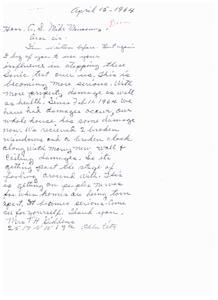 April 15-1964
Hon. A. S. Mike Monroney,
Dear Sir.
I've written before. But again
I beg of you to use your
influence in stopping these
Sonic tests over us. This is
becoming more serious. With
more property damage as well
as health. Since Feb. 16 1964. We
have had damages occur, our
whole house has some damage
now. We received 2 broken
windows and a broken lock
along with many new wall &
Ceiling damages. So its
getting past the stage of
fooling around with. This
is getting on peoples nerves
for when homes are being torn
apart, it becomes serious. Come
see for yourself. Thank you,
Mrs. T. H.
2517 N.W. 19th Okla City